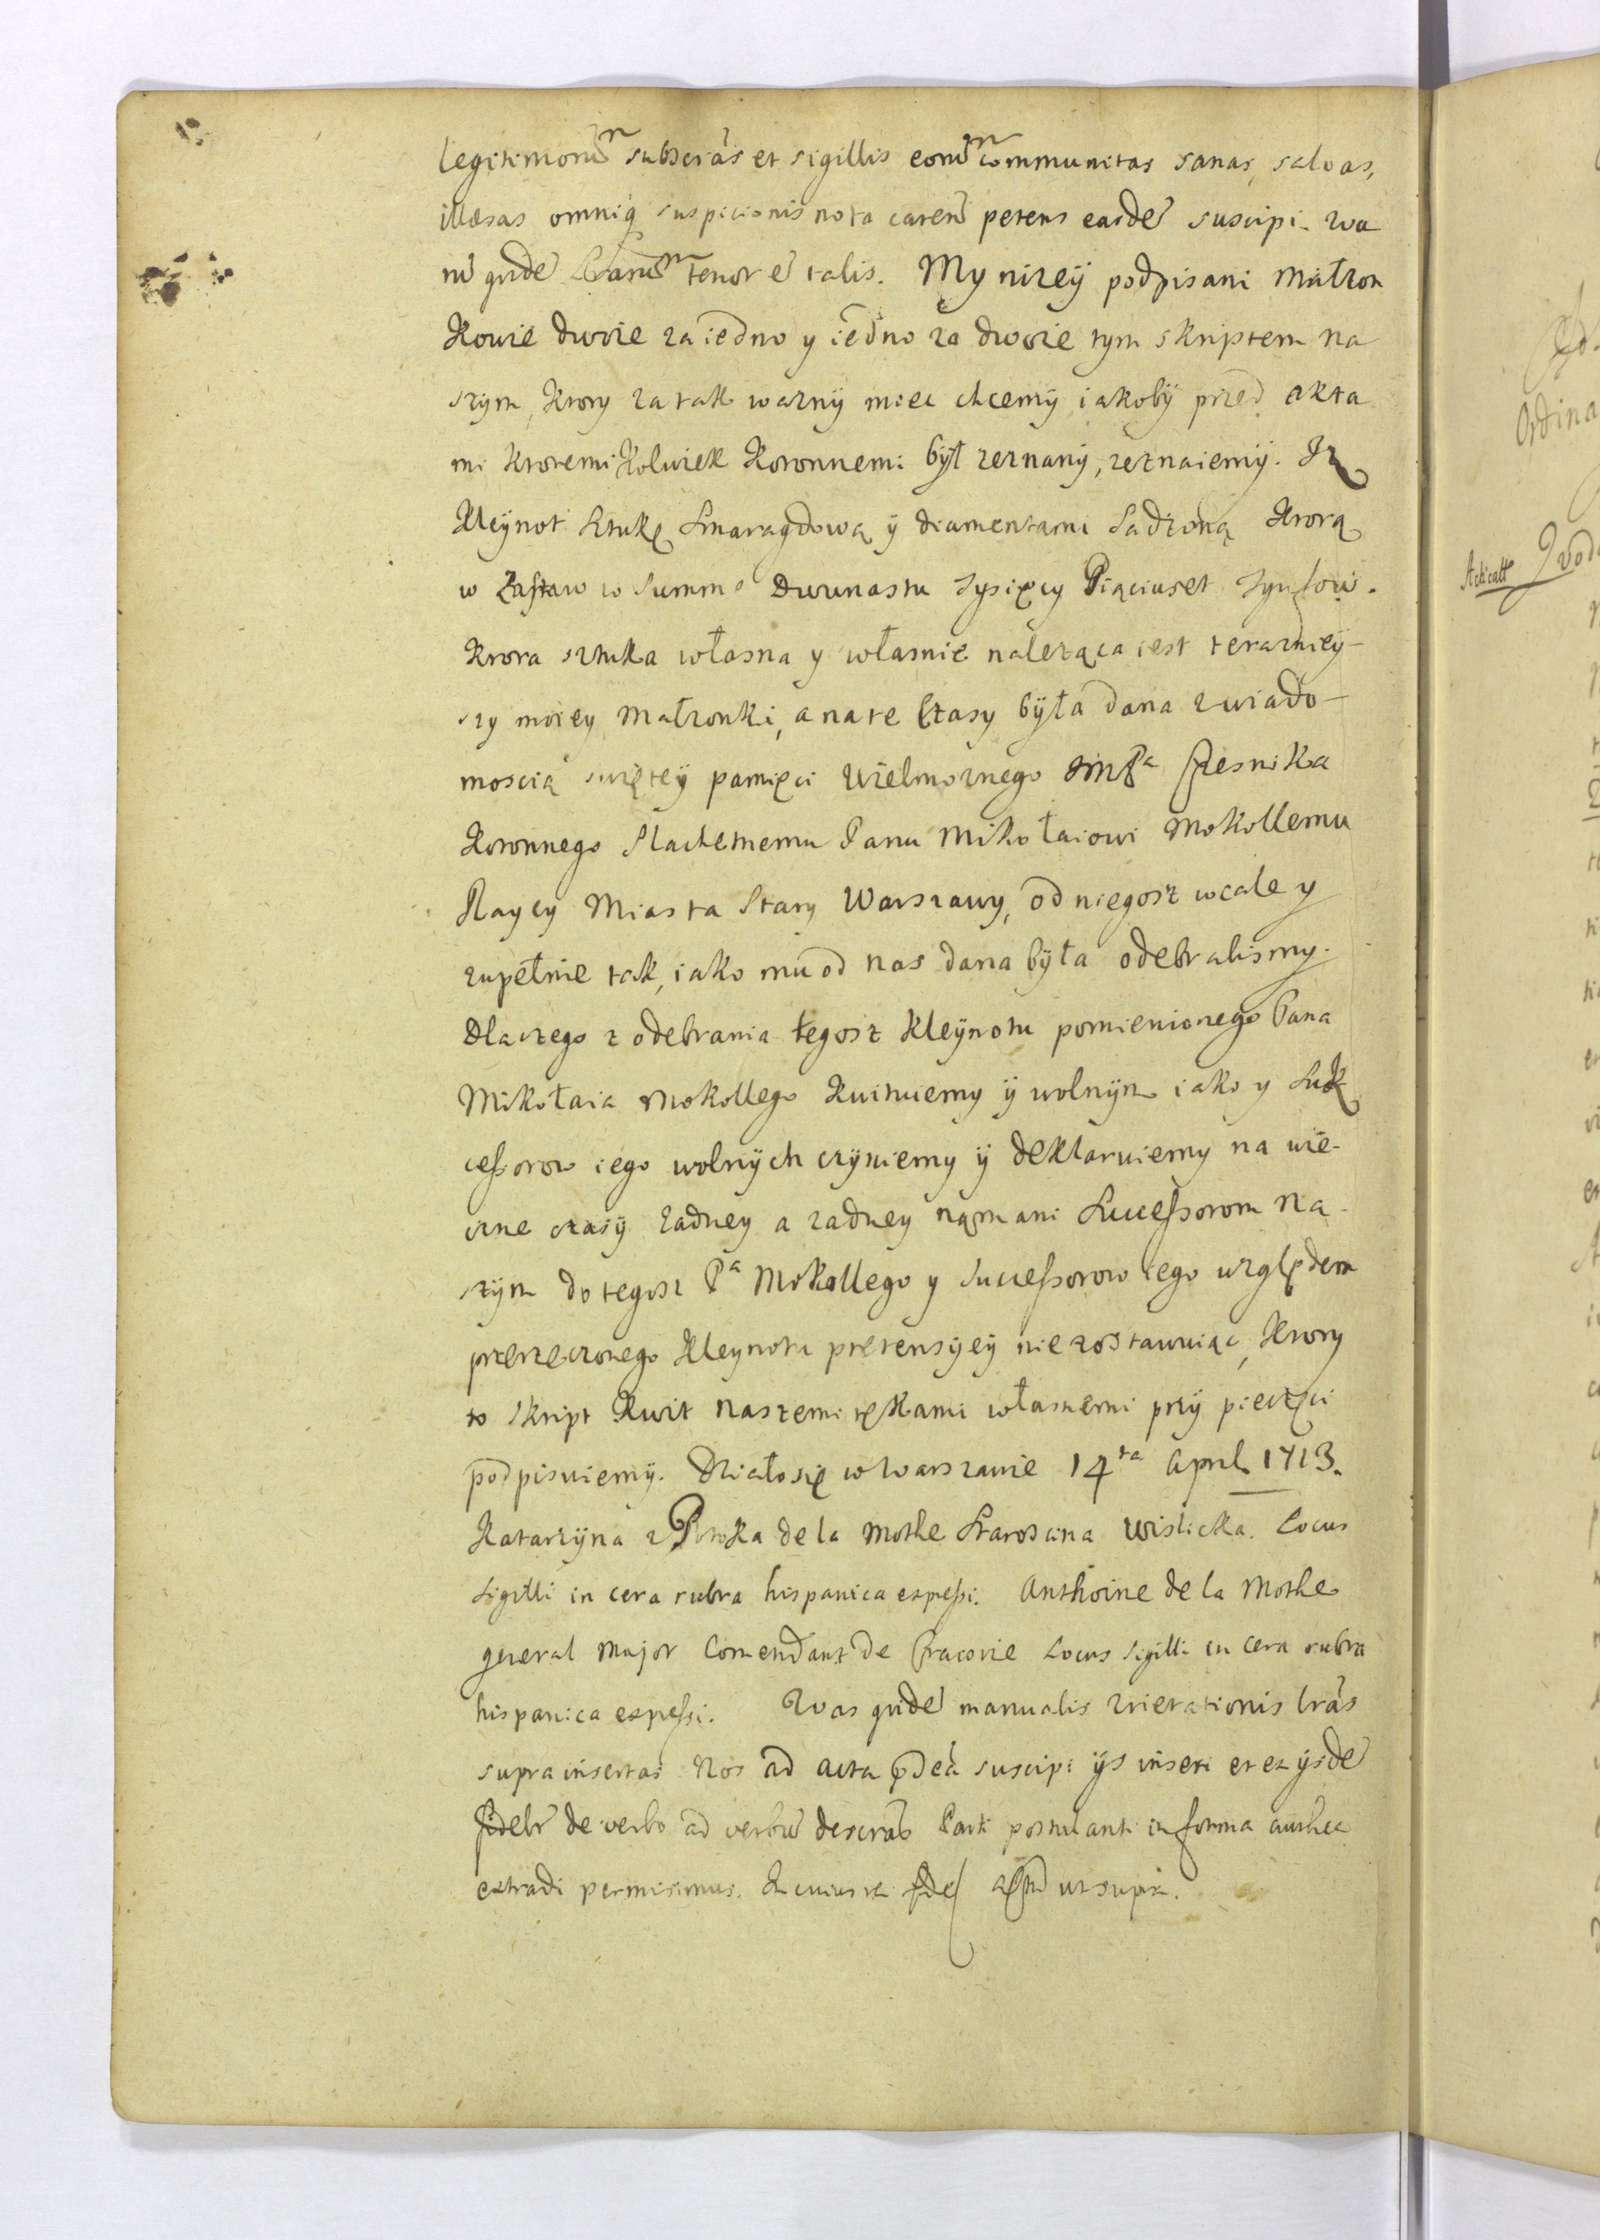 legitimorũ subscrãs et sigillis eorũ communitas sanas, salvas,
illæsas omniq suspicionis nota caren̄ petens easdē suscipi.
nũ qudẽ tenor ẽ talis. My nizeÿ podpisani Małzon
kowie dwoie za iedno y iedno za dwoie tym skriptem na
szym, ktory za tak waznÿ miec chcemÿ iakobÿ przed akta
mi ktoremi kolwiek koronnemi był zeznanÿ, zeznaiemÿ. Iz
Kleÿnot Sztukę Smaragdową ÿ diamentami Sadzoną ktorą
w Zastaw w Summe Dwunastu Tysięcy Pięciuset Tynfow.
ktora sztuka własna y własnie nalezącą iest terazniey-
szy moiey Małzonki, a na te Czasy bÿła dana z wiado-
moscią swiętey pamięci Wielmoznego JmPa Czesnika
Koronnego Slachetnemu Panu Mikołaiowi Mokollemu
Raycy Miasta Stary Warszawy, od niegosz wcale y
zupełnie tak, iako mu od nas dana była odebralismy.
Dlaczego z odebrania tegosz Kleÿnotu pomienionego Pana
Mikołaia Mokollego kwituiemy ÿ wolnÿm iako y Suk
cessorow iego wolnÿch czÿniemy ÿ deklaruiemy na wie-
czne czasÿ zadney a zadney nąm ani Successorom na-
szÿm do tegosz Pa Mokollego y Successorow iego względem
przerzeczonego Kleynotu pretensÿeÿ nie zostawuiąc, ktory
to skript kwit naszemi rękami własnemi przÿ pieczęci
podpisuiemÿ. Działo się w Warszawie 14ta April. 1713.
Katarzÿna z Potoka de la Mothe Starosc̀ina Wislicka. Locus
Sigilli in cera rubra hispanica expressi. Anthoine de la Mothe
general Major Comendant de Cracovie Locus Sigilli in cera rubra
hispanica expressi. qudẽ manualis lrãs
supra insertas Nos ad acta pdcã suscipi ijs inseri et ex ijsdẽ
de verbo ad verbũ Parti postulanti in forma authca
extradi permisimus. In cuius rei ut supra.
Acticatt